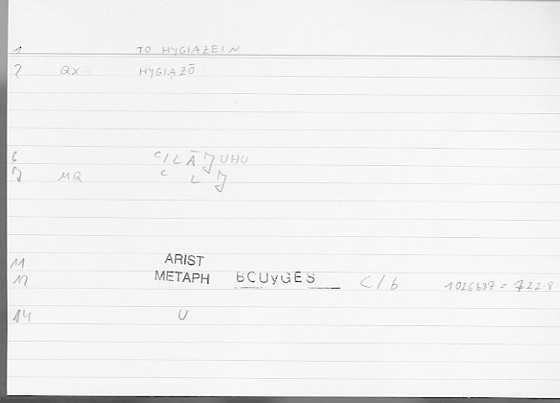 1 TO HYGIAZEIN
2 QX HYGIAZŌ
6 C/LĀJUHU
7 MQ C L J
11 ARIST
12 METAPH BCUyGES C/b 1026b37 = 722.8
14 U